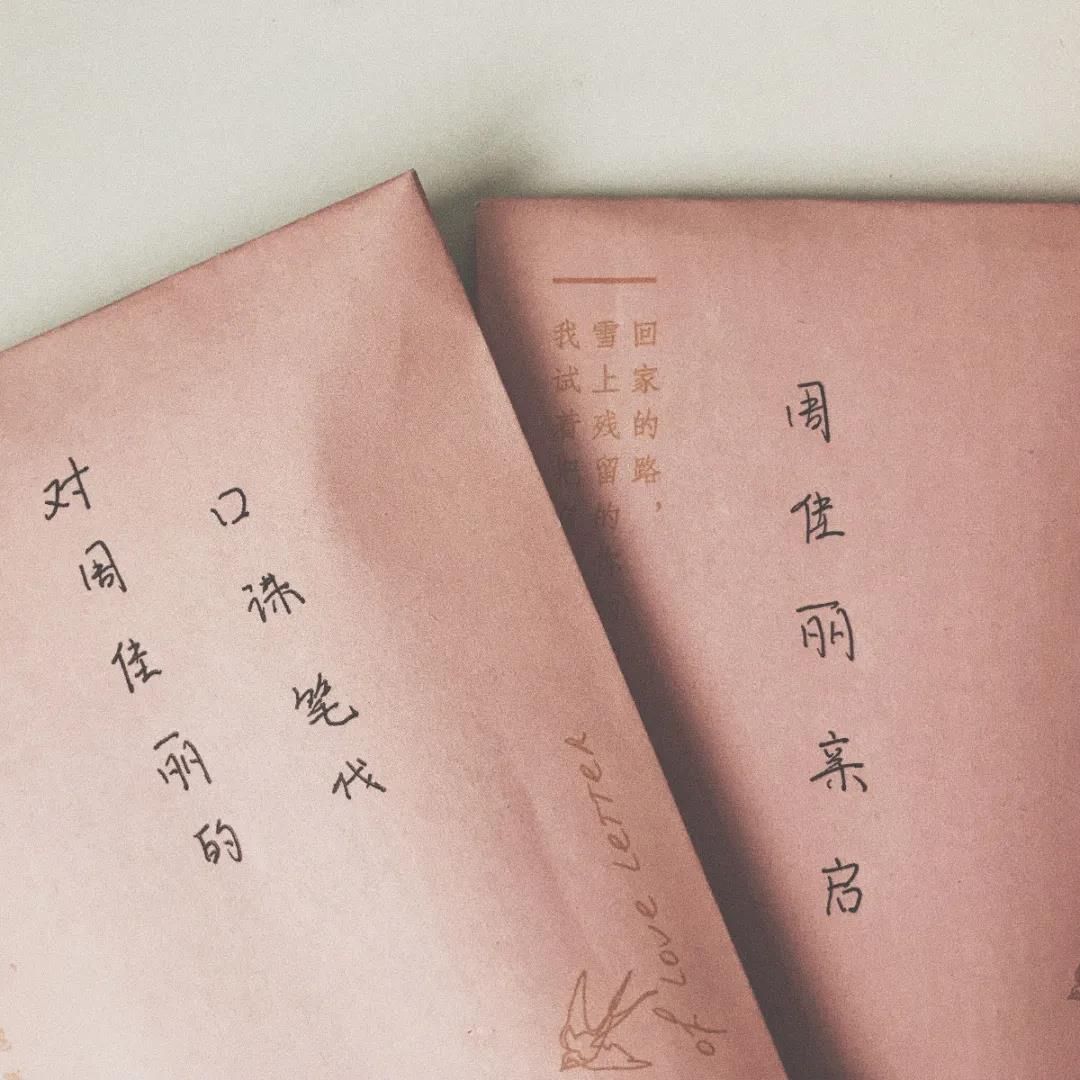 对周佳丽的
口诛笔伐
of LOVE LETTER
回家的路，
雪上残留的
我试着把
周佳丽亲启